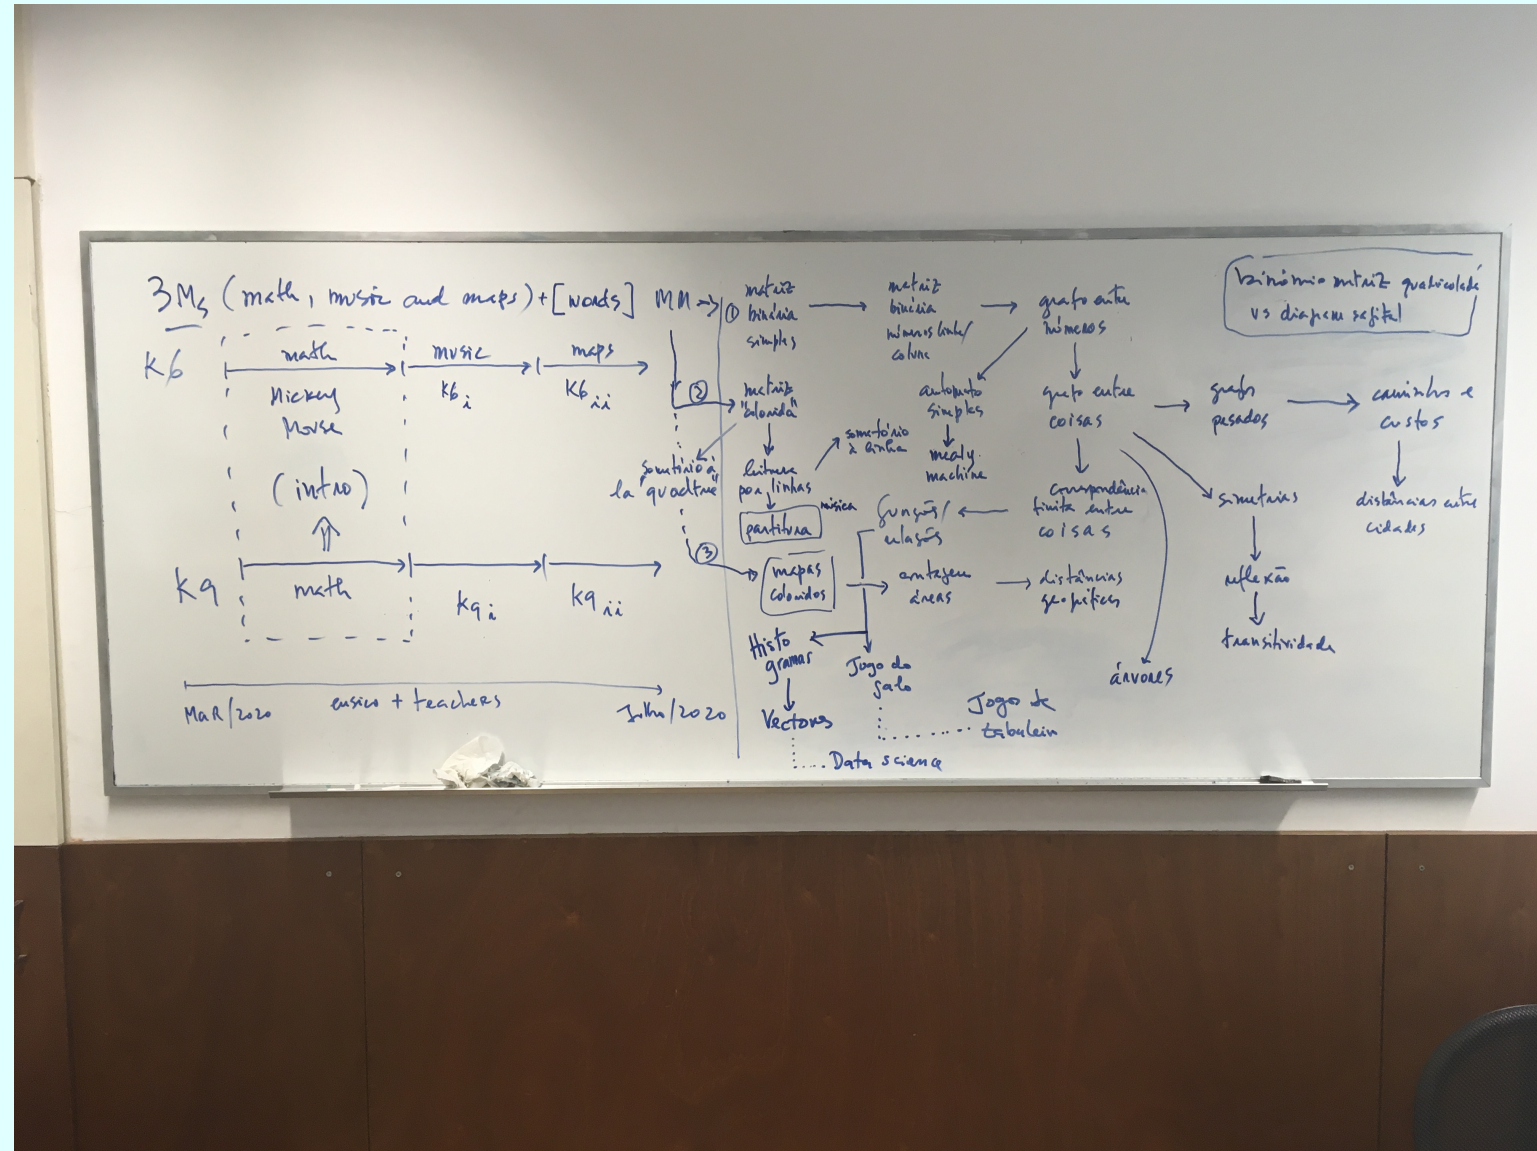 3Ms (math, music and maps) + [words]
K6
math
music
maps
Mickey
Mouse
K6 i
K6 ii
(intro)
K9
math
K9 i
K9 ii
MaR/2020
ensico + teachers
Julho/2020
MM
①
matriz
binária
simples
matriz
binária
números linha/
coluna
grafo entre
números
binómio matriz quadriculada
vs diagrama sagital
②
matriz
"colorida"
automato
simples
mealy
machine
grafo entre
coisas
grafos
pesados
caminhos e
custos
distâncias entre
cidades
somatório à
la "quadtree"
leitura
por linhas
somatório
à linha
partitura
música
funções/
relações
correspondência
finita entre
coisas
simetrias
reflexão
transitividade
árvores
③
mapas
coloridos
contagem
áreas
distâncias
geográficas
Histo
gramas
Vectores
Data science
Jogo do
galo
Jogos de
tabuleiro